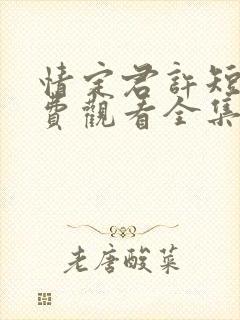 情定君許短
費觀看全集
老唐酸菜